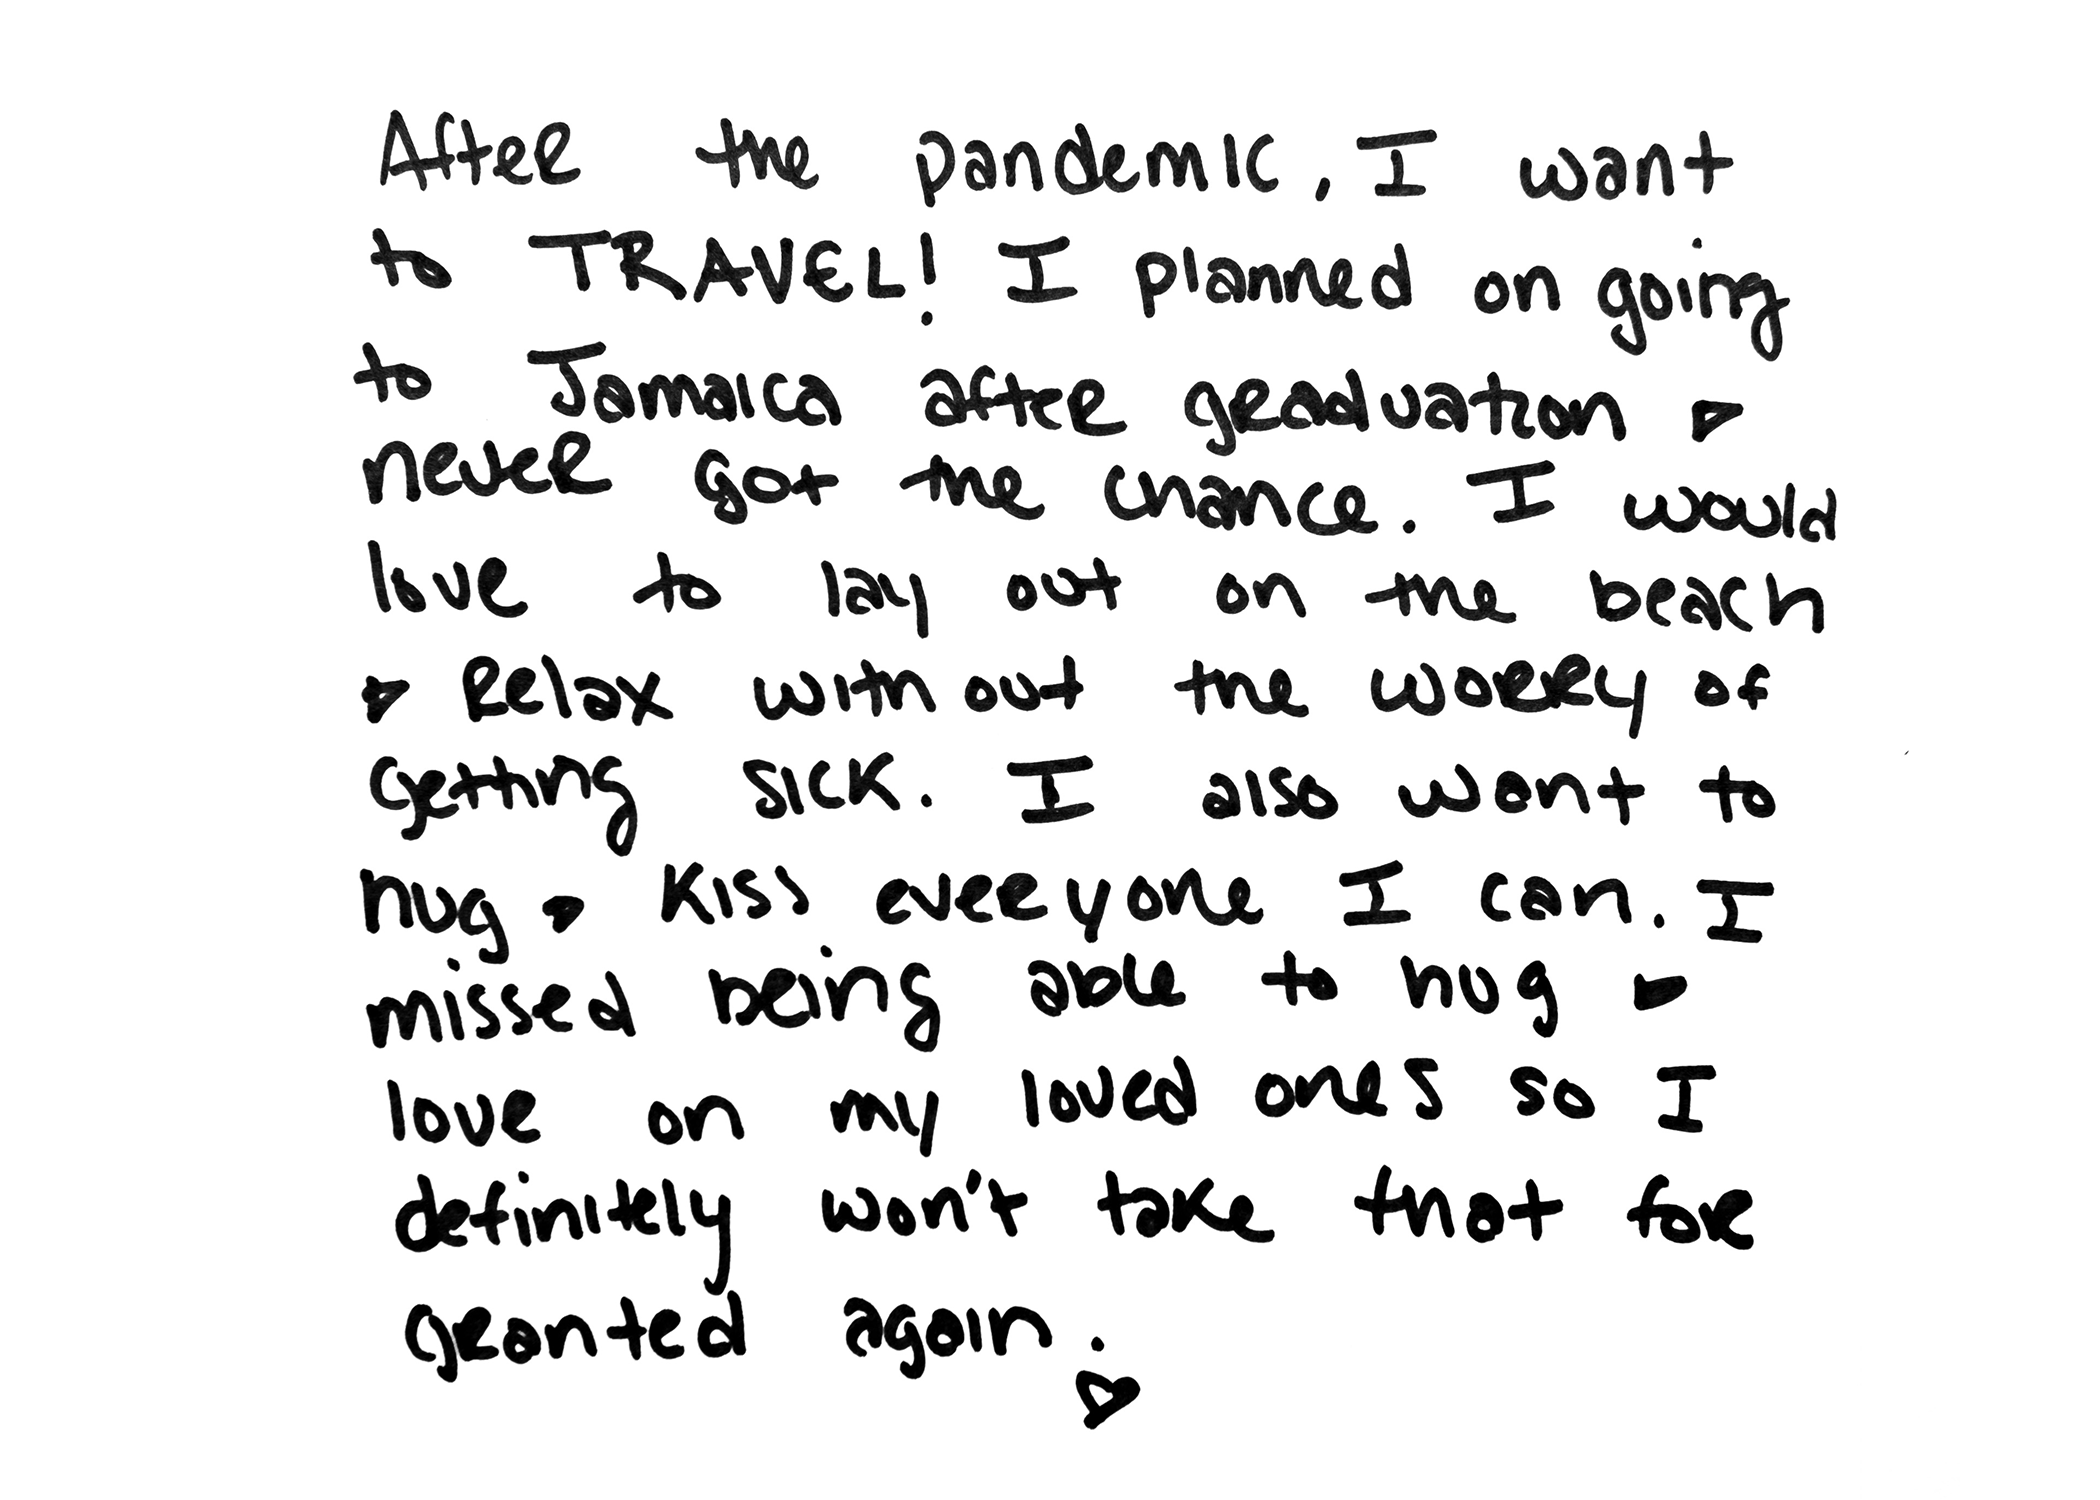 After the pandemic, I want
to TRAVEL! I planned on going
to Jamaica after graduation ♥
never got the chance. I would
love to lay out on the beach
♥ Relax without the worry of
getting sick. I also want to
hug ♥ kiss everyone I can. I
missed being able to hug ♥
love on my loved ones so I
definitely won't take that for
granted again.
♡